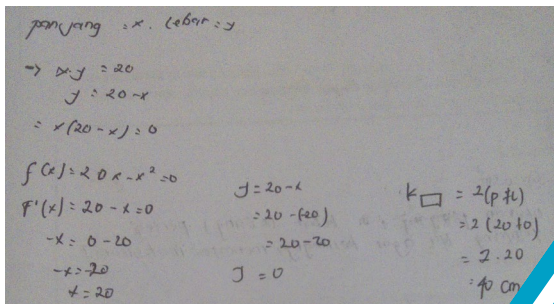 panjang = x . Lebar = y
→ x.y = 20
y = 20 - x
= x(20 - x) = 0
f(x) = 20x - x² = 0
F'(x) = 20 - x = 0
-x = 0 - 20
-x = -20
x = 20
y = 20 - x
= 20 - (20)
= 20 - 20
y = 0
k▭ = 2(p+l)
= 2(20+0)
= 2.20
= 40 cm